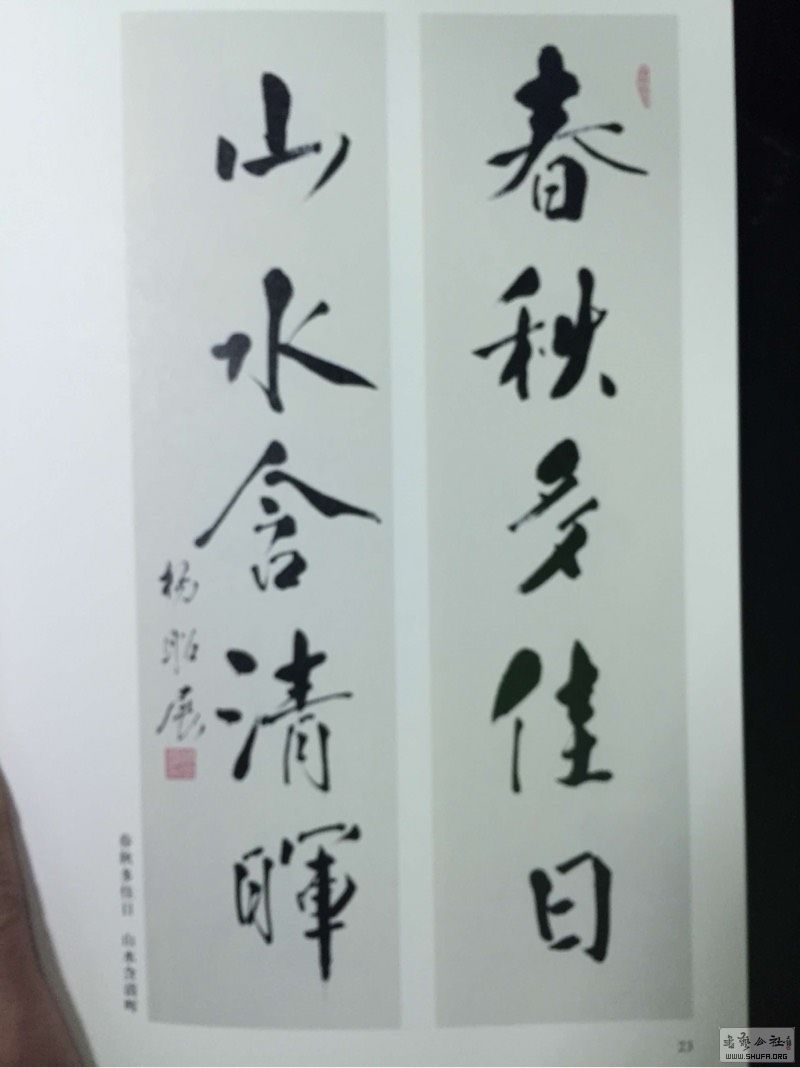 春秋多佳日
山水含清暉
楊昭展
春秋多佳日 山水含清晖
23
书艺公社
WWW.SHUFA.ORG